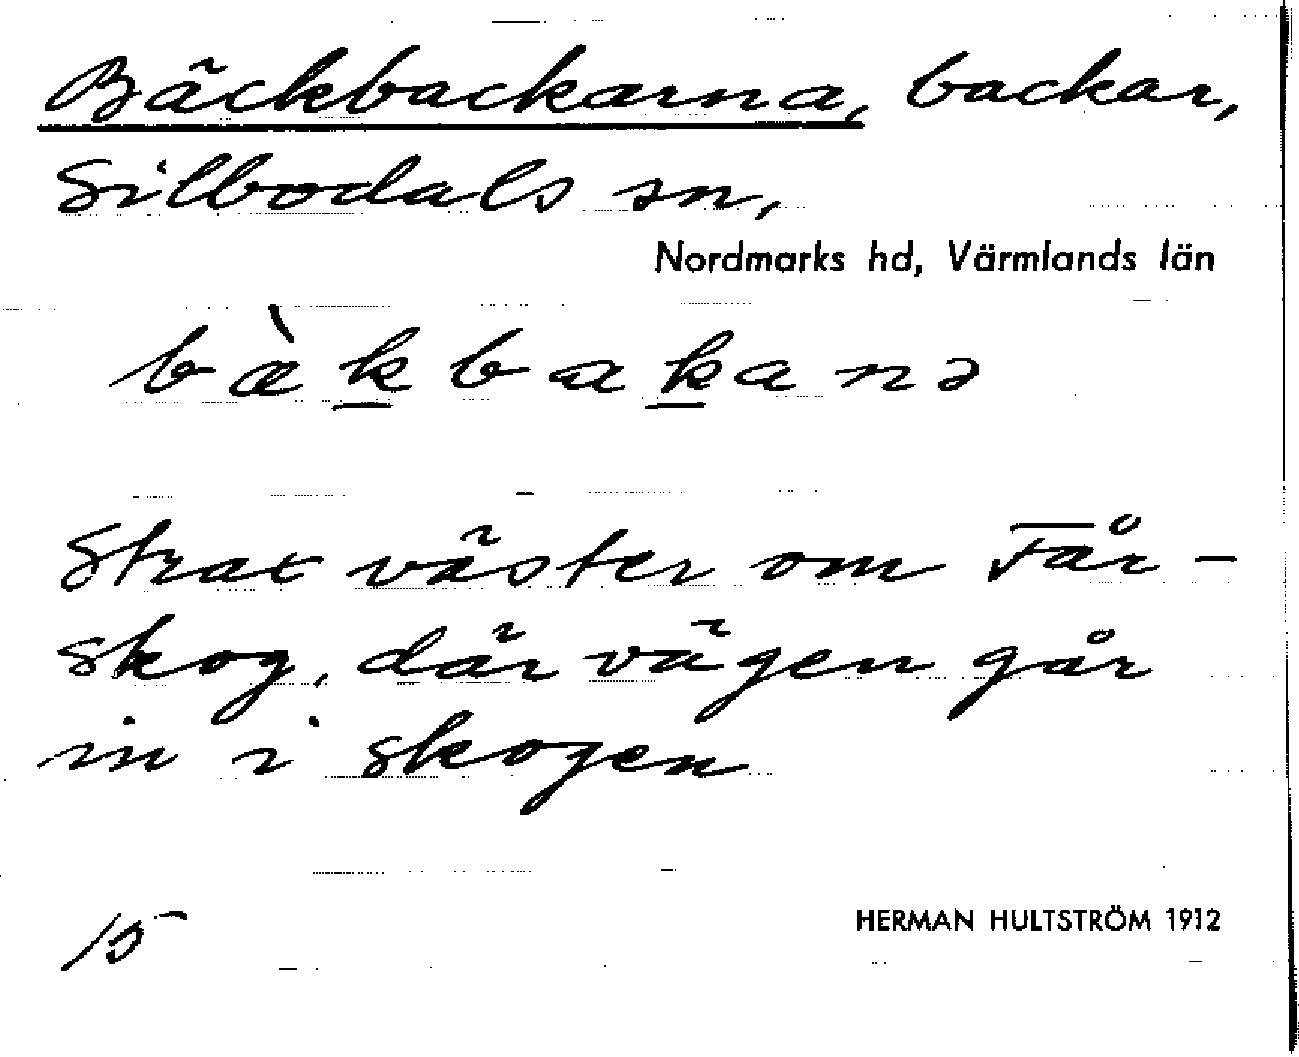 Bäckbackarna, backar,
Silbodals sn,
Nordmarks hd, Värmlands län
bæ̀kbakanə
Strax väster om Får-
skog, där vägen går
in i skogen
15
HERMAN HULTSTRÖM 1912